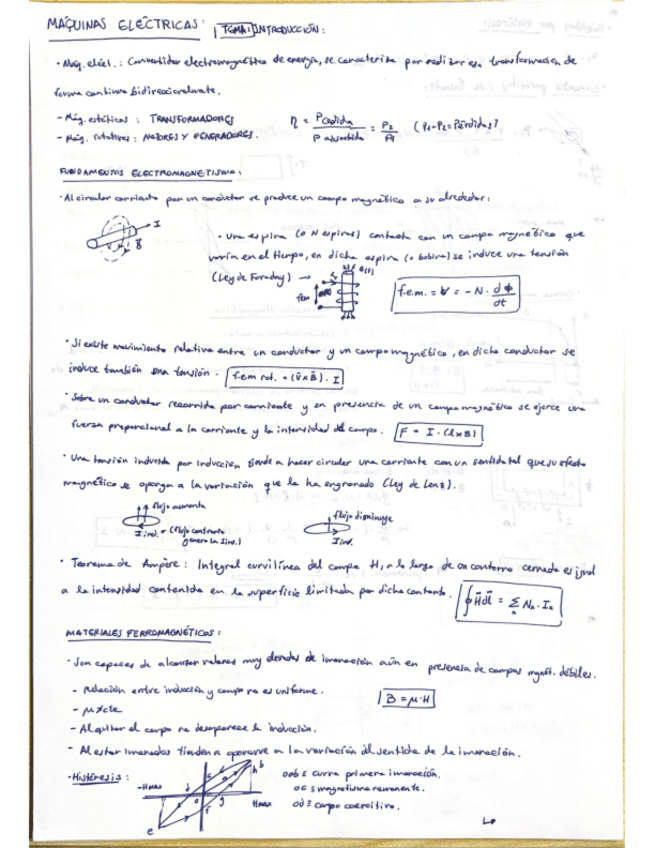 MÁQUINAS ELÉCTRICAS: TEMA 1 INTRODUCCIÓN:
· Máq. eléct.: Convertidor electromagnético de energía, se caracteriza por realizar esa transformación de
forma continua bidireccionalmente.
- Máq. estáticas : TRANSFORMADORES
- Máq. rotativas : MOTORES Y GENERADORES.
η = P cedida / P absorbida = P2 / P1 (P1-P2=Pérdidas)
FUNDAMENTOS ELECTROMAGNETISMO:
· Al circular corriente por un conductor se produce un campo magnético a su alrededor:
I
B
· Una espira (o N espiras) contacta con un campo magnético que
varía en el tiempo, en dicha espira (o bobina) se induce una tensión
(Ley de Faraday) →
fem
f.e.m. = V = -N · dΦ/dt
· Si existe movimiento relativo entre un conductor y un campo magnético, en dicho conductor se
induce también una tensión. f.em rot. = (v⃗ x B⃗) · I
· Sobre un conductor recorrido por corriente y en presencia de un campo magnético se ejerce una
fuerza proporcional a la corriente y la intensidad del campo. F = I · (l x B)
· Una tensión inducida por inducción tiende a hacer circular una corriente con un sentido tal que su efecto
magnético se oponga a la variación que la ha engendrado (Ley de Lenz).
flujo aumenta
I ind. = (flujo contrario
genera la I ind.)
flujo disminuye
I ind.
· Teorema de Ampère: Integral curvilínea del campo H, a lo largo de un contorno cerrado es igual
a la intensidad contenida en la superficie limitada por dicho contorno. ∮H⃗dl⃗ = Σ Nₙ · Iₙ
n
MATERIALES FERROMAGNÉTICOS:
· Son capaces de alcanzar valores muy elevados de imanación aún en presencia de campos magnét. débiles.
- Relación entre inducción y campo no es uniforme.
B = μ·H
- μ≠cte
- Al quitar el campo no desaparece la inducción.
- Al estar imanados tienden a oponerse a la variación del sentido de la imanación.
- Histéresis:
-Hmax
Hmax
b
c
d
e
f
g
h
o
a
oab ≡ curva primera imanación.
oc ≡ magnetismo remanente.
od ≡ campo coercitivo.